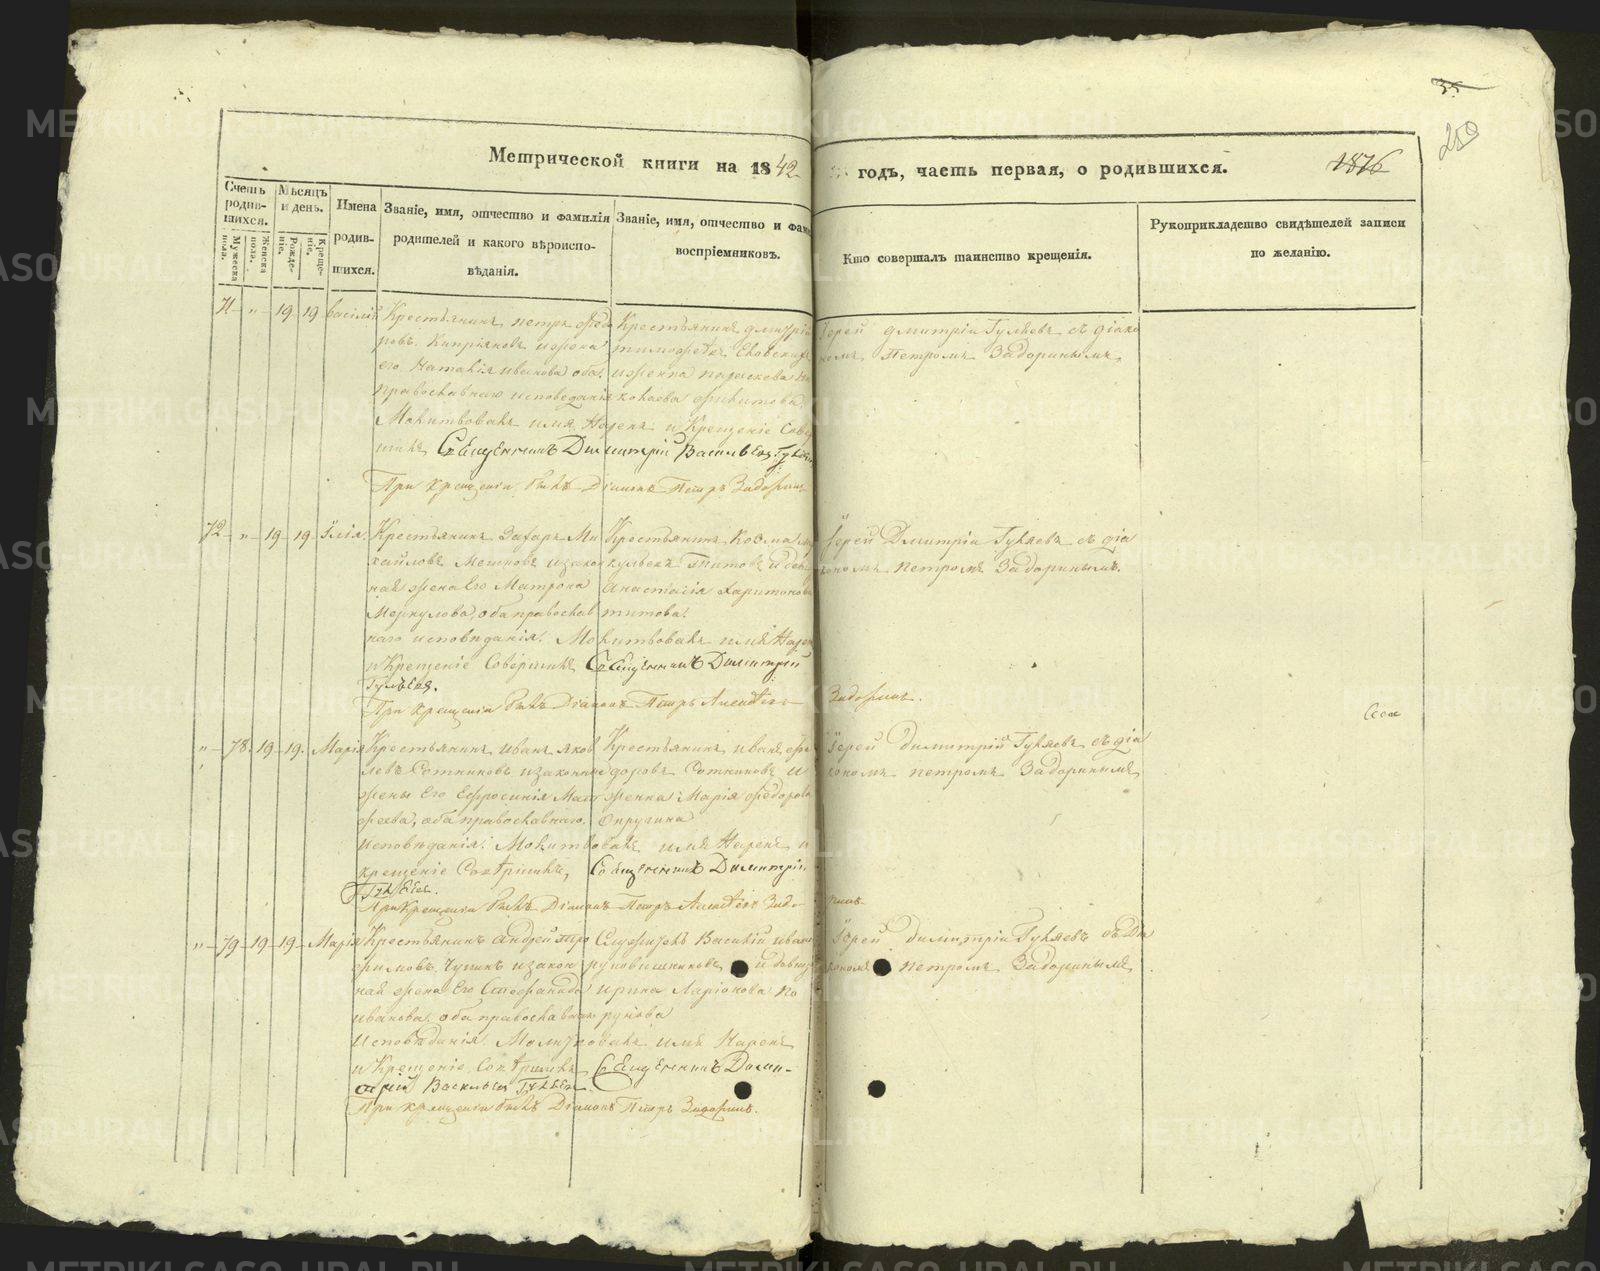 35
259
Метрической книги на 1842 годъ, часть первая, о родившихся.
1876
Счетъ родив-шихся.
Мужеска пола.
Женска пола.
Мѣсяцъ и день.
Рожде-ніе.
Креще-ніе.
Имена родив-шихся.
Званіе, имя, отчество и фамилія родителей и какого вѣроиспо-вѣданія.
Званіе, имя, отчество и фами воспріемниковъ.
Кто совершалъ таинство крещенія.
Рукоприкладство свидѣтелей записи по желанію.
71 " 19 19 Василій
Крестьянинъ петръ Федо
ровъ Кипріяновъ и жена
его Наталія иванова оба
православнаго исповеданія
Крестьянинъ дмитрій
и жена параскева
Молитвовалъ имя Нарекъ и Крещеніе Совер
шилъ Священникъ Димитрій Васильевъ Гуляевъ
При крещеніи былъ Діаконъ Петръ Задоринъ
Іерей дмитрій Гуляевъ съ діако
номъ Петромъ Задоринымъ
72 " 19 19 Илія
Крестьянинъ Захаръ Ми
хайловъ и закон
ная жена Его Матрона
Меркулова, оба православ
наго исповѣданія. Молитвовалъ имя Нарек
и Крещеніе Совершилъ Священникъ Димитрій
Гуляевъ.
При крещеніи былъ Діаконъ Петръ Алексѣевъ Задоринъ.
Крестьянинъ Козма
Титовъ и дев
Анастасія Харитонова
титова.
Іерей Дмитрій Гуляевъ съ діа
кономъ петромъ Задоринымъ.
" 78 19 19 Марія
Крестьянинъ Иванъ яков
левъ Сотниковъ и законные
жены Его Ефросинія Мат
феева, оба православнаго
исповѣданія. Молитвовалъ имя Нарекъ и
крещеніе Совершилъ, Священникъ Димитрій
Гуляевъ.
При Крещеніи былъ Діаконъ Петръ Алексѣевъ Задо
ринъ.
Крестьянинъ иванъ фе
доровъ Сотниковъ и
женка Марія федорова
Опругина
Іерей димитрій Гуляевъ съ діа
кономъ петромъ Задоринымъ
" 79 19 19 Марія
Крестьянинъ Андрей тро
фимовъ Чупинъ и закон
ная жена Его Стефанида
иванова, оба православнаго
Исповѣданія. Молитвовалъ имя Нарекъ
и Крещеніе Совершилъ Священникъ Дими-
трій Васильевъ Гуляевъ
При крещеніи былъ Діаконъ Петръ Задоринъ.
Служитель Василій ива
и девица
ирина Ларіонова По
рукова
Іерей димитрій Гуляевъ съ Ді
кономъ петромъ Задоринымъ